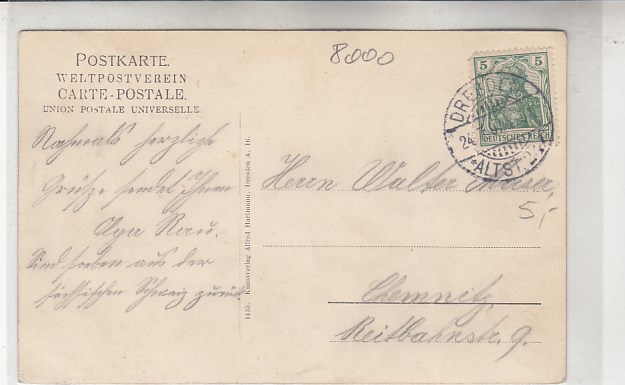 POSTKARTE.
WELTPOSTVEREIN
CARTE-POSTALE.
UNION POSTALE UNIVERSELLE
8000
5 5
DEUTSCHES REICH
DRESDEN
24
ALTST.
Nochmals herzliche
Grüße sendet Ihnen
Rau.
Sind soeben aus der
sächsischen Schweiz zurück
1455. Kunstverlag Alfred Hartmann, Dresden A. 16.
Herrn Walter
5,-
Chemnitz
Reitbahnstr. 9.